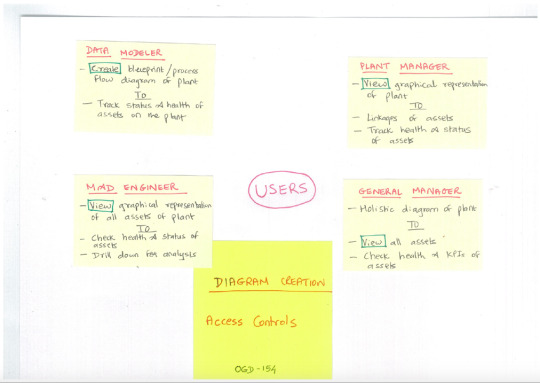 DATA MODELER
- Create blueprint/process
flow diagram of plant
TO
- Track status & health of
assets on the plant
PLANT MANAGER
- View graphical representation
of plant
TO
- Linkages of assets
- Track health & status
of assets
M&D ENGINEER
- View graphical representation
of all assets of plant
TO
- Check health & status of
assets
- Drill down for analysis
USERS
GENERAL MANAGER
- Holistic diagram of plant
TO
- View all assets
- Check health & KPIs of
assets
DIAGRAM CREATION
Access Controls
OGD-154